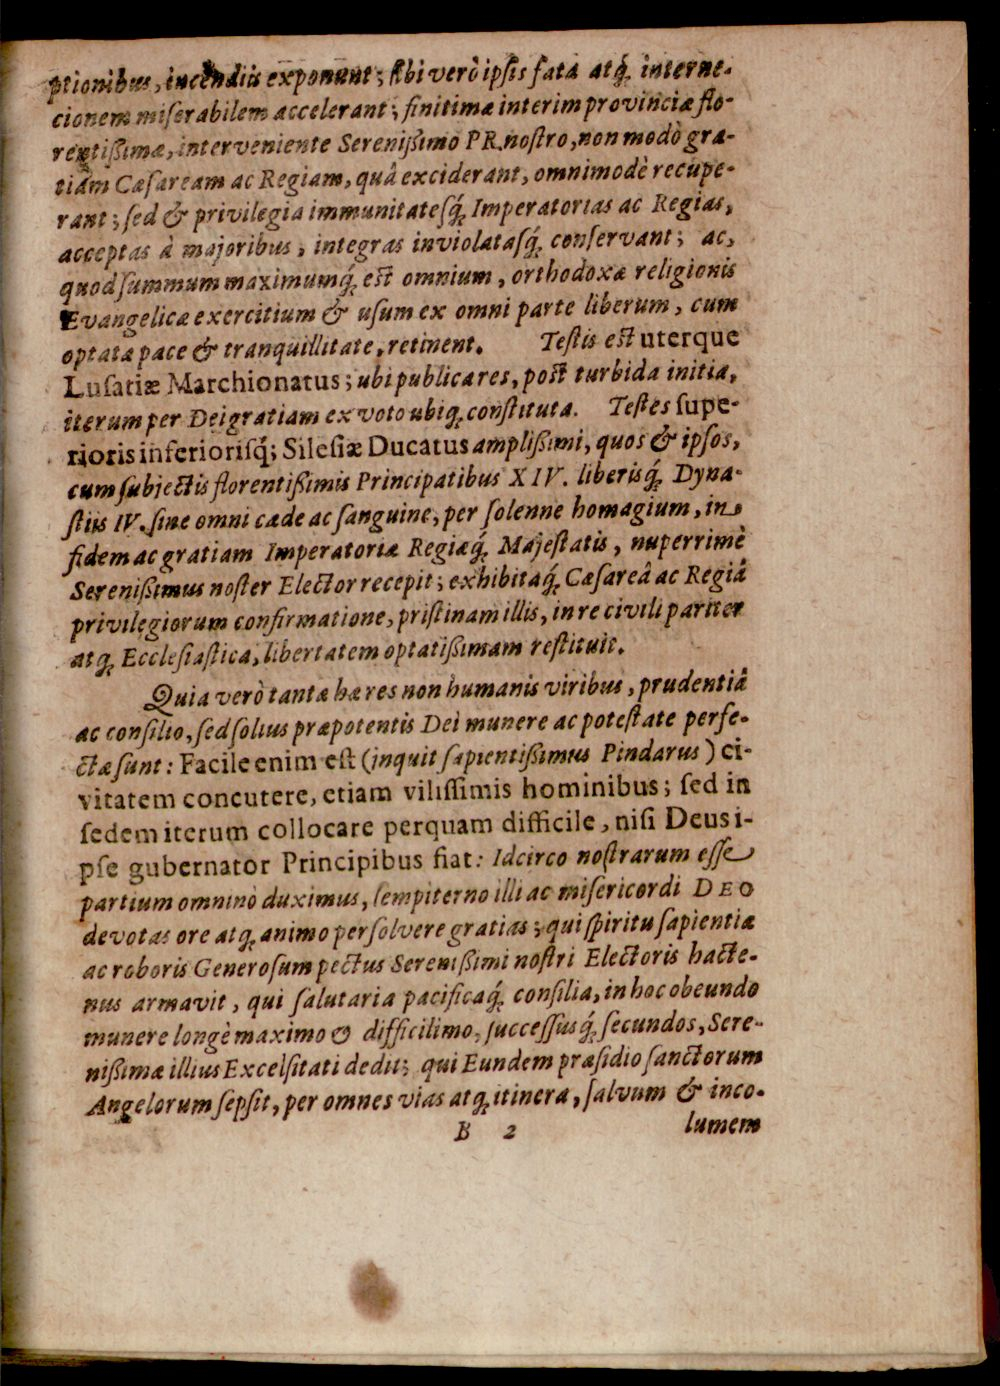 ptionibus, incendiis exponunt; sibi verò ipsis fata atq́; interne-
cionem miserabilem accelerant; finitimæ interim provinciæ flo-
rentißimæ, interveniente Serenißimo PR. nostro, non modò gra-
tiam Cæsaream ac Regiam, quâ exciderant, omnimodè recupe-
rant; sed & privilegia immunitatesq́; Imperatorias ac Regias,
acceptas à majoribus, integras inviolatasq́; conservant; ac,
quod summum maximumq́; est omnium, orthodoxæ religionis
Evangelicæ exercitium & usum ex omni parte liberum, cum
optata pace & tranquillitate, retinent. Testis est uterque
Lusatiæ Marchionatus; ubi publica res, post turbida initia,
iterum per Dei gratiam ex voto ubiq; constituta. Testes supe-
rioris inferiorisq́; Silesiæ Ducatus amplißimi, quos & ipsos,
cum subjectis florentißimis Principatibus XIV. liberisq́; Dyna-
stiis IV. sine omni cæde ac sanguine, per solenne homagium, in
fidem ac gratiam Imperatoriæ Regiæq́; Majestatis, nuperrimè
Serenißimus noster Elector recepit; exhibitaq́; Cæsareâ ac Regiâ
privilegiorum confirmatione, pristinam illis, in re civili pariter
atq; Ecclesiastica, libertatem optatißimam restituit.
Quia verò tantæ hæ res non humanis viribus, prudentiâ
ac consilio, sed solius præpotentis Dei munere ac potestate perfe-
ctæ sunt: Facile enim est (inquit sapientißimus Pindarus) ci-
vitatem concutere, etiam vilissimis hominibus; sed in
sedem iterum collocare perquam difficile, nisi Deus i-
pse gubernator Principibus fiat: Idcirco nostrarum esse
partium omninò duximus, sempiterno illi ac misericordi DEO
devotas ore atq; animo persolvere gratias; qui spiritu sapientiæ
ac roboris Generosum pectus Serenißimi nostri Electoris hacte-
nus armavit, qui salutaria pacificaq́; consilia, in hoc obeundo
munere longè maximo & difficilimo, successusq́; secundos, Sere-
nißimæ illius Excelsitati dedit; qui Eundem præsidio sanctorum
Angelorum sepsit, per omnes vias atq; itinera, salvum & inco-
B 2 lumem